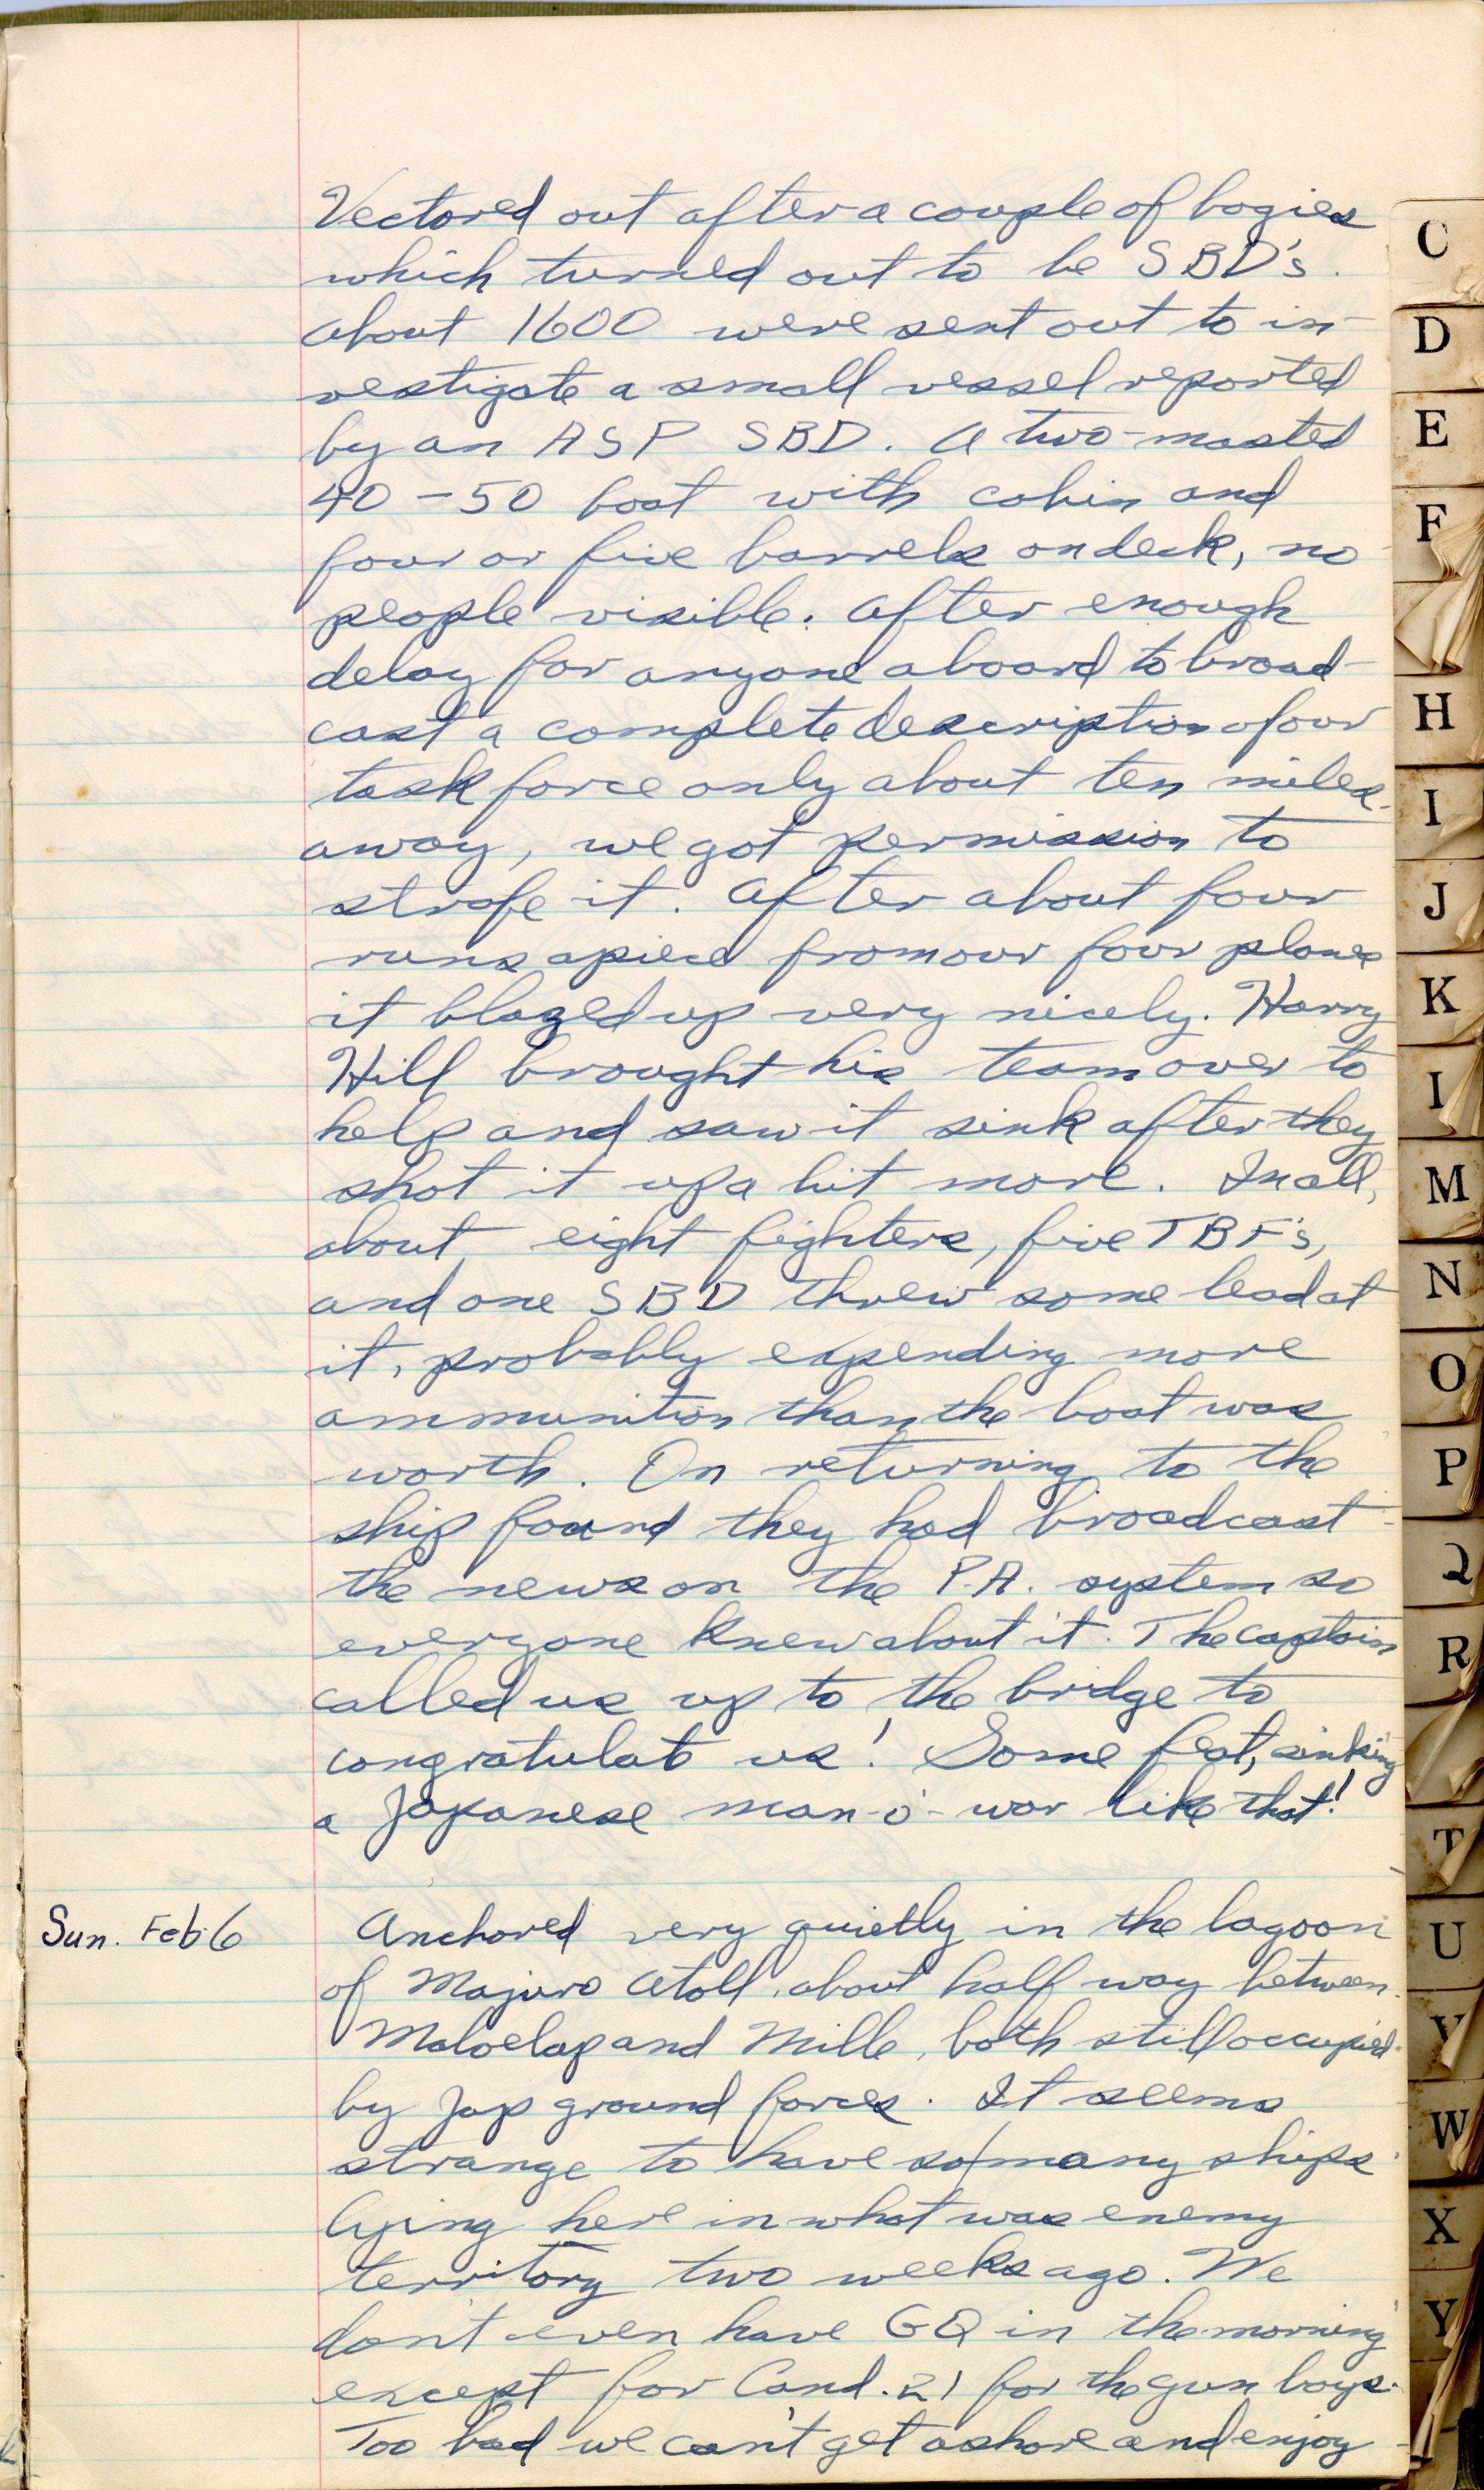 Vectored out after a couple of bogies
which turned out to be SBD's.
About 1600 were sent out to in-
vestigate a small vessel reported
by an ASP SBD. A two-masted
40-50 foot with cabin and
four or five barrels on deck, no
people visible. After enough
delay for anyone aboard to broad-
cast a complete description of our
task force only about ten miles
away, we got permission to
strafe it. After about four
runs apiece from our four planes
it blazed up very nicely. Harry
Hill brought his team over to
help and saw it sink after they
shot it up a bit more. In all,
about eight fighters, five TBF's,
and one SBD threw some lead at
it, probably expending more
ammunition than the boat was
worth. On returning to the
ship found they had broadcast
the news on the P.A. system so
everyone knew about it. The captain
called us up to the bridge to
congratulate us! Some feat, sinking
a Japanese man-o'-war like that!
Sun. Feb 6 Anchored very quietly in the lagoon
of Majuro Atoll, about half way between
Maloelap and Mille, both still occupied
by Jap ground forces. It seems
strange to have so/many ships
lying here in what was enemy
territory two weeks ago. We
don't even have GQ in the morning
except for Cond. 21 for the gun boys.
Too bad we can't get ashore and enjoy
C
D
E
F
H
I
J
K
I
M
N
O
P
Q
R
T
U
V
W
X
Y